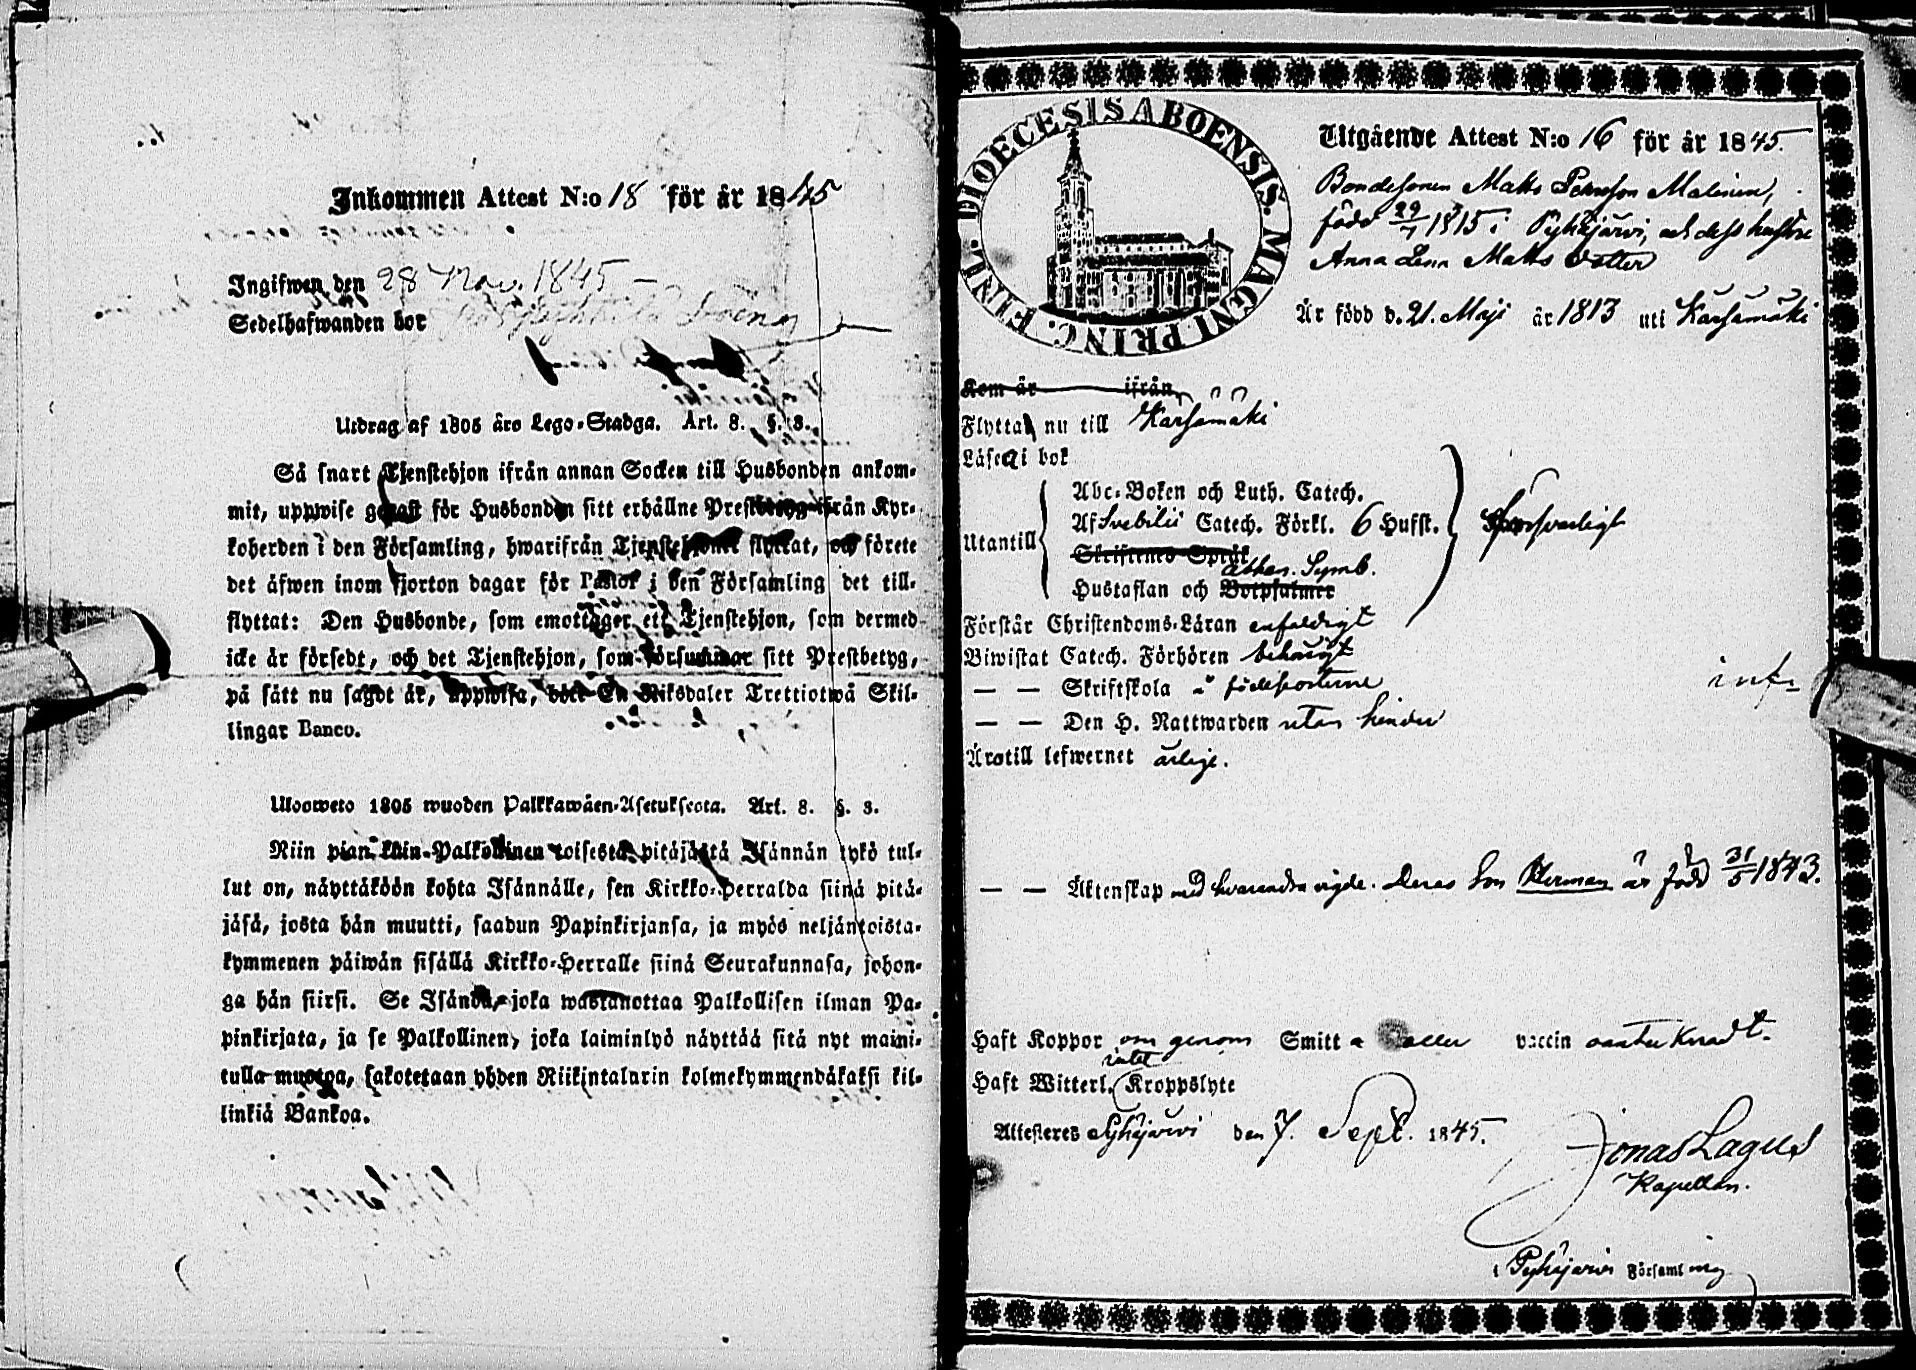 Inkommen Attest N:o 18 för år 1845
Ingifwen den 28 Nov. 1845
Sedelhafwanden bor
Utdrag af 1805 års Lego-Stadga. Art. 8. §. 3.
Så snart Tjenstehjon ifrån annan Socken till Husbonden ankom-
mit, uppwise genast för Husbonden sitt erhållne Prestbetyg ifrån Kyr-
koherden i den Församling, hwarifrån Tjenstehjonet flyttat, och förete
det äfwen inom fjorton dagar för Pastor i den Församling det till-
flyttat: Den Husbonde, som emottager ett Tjenstehjon, som dermed
icke är försedt, och det Tjenstehjon, som försummar sitt Prestbetyg,
på sätt nu sagdt är, uppwisa, böte En Riksdaler Trettiotwå Skil-
lingar Banco.
Ulosweto 1805 wuoden Palkkawäen-Asetuksesta. Art. 8. §. 3.
Niin pian kuin Palkollinen toisesta pitäjästä Isännän tykö tul-
lut on, näyttäköön kohta Isännälle, sen Kirkko-Herralda siinä pitä-
jäsä, josta hän muutti, saadun Papinkirjansa, ja myös neljäntoista-
kymmenen päiwän sisällä Kirkko-Herralle siinä Seurakunnasa, johon-
ga hän siirsi. Se Isändä, joka wastanottaa Palkollisen ilman Pa-
pinkirjata, ja se Palkollinen, joka laiminlyö näyttää sitä nyt maini-
tulla muotoa, sakotetaan yhden Riikintalarin kolmekymmendäkaksi kil-
linkiä Bankoa.
DIOECESIS ABOENSIS. MAGNI PRINC. FINL.
Utgående Attest N:o 16 för år 1845.
Bondesonen Matts Persson Malinen,
född 29/7 1815 i Pyhäjärvi, och dess hustru
Anna Lena Matts dotter
Är född d. 21. Maji år 1813 uti Kärsämäki
Kom år ifrån
Flytta nu till Kärsämäki
Läser i bok
Abc-Boken och Luth. Catech.
Utantill Af Svebilii Catech. Förkl. 6 Hufst. försvarligt
Skriftenes Språk
Athan. Symb.
Hustaflan och Botpsalmer
Förstår Christendoms-Läran enfaldigt
Biwistat Catech. Förhören behörigt
— — Skriftskola å födelseorterne
— — Den H. Nattwarden utan hinder
Är till lefwernet ärlige.
— — Äktenskap med hvarandra vigde. Deras Son Herman är född 31/5 1843.
Haft Koppor om genom Smitta eller vaccin oantecknadt.
intet
Haft Witterl. Kroppslyte
Attesteres Pyhäjärvi den 7. Sept. 1845.
Jonas Lagus
Kapellan.
i Pyhäjärvi Församling